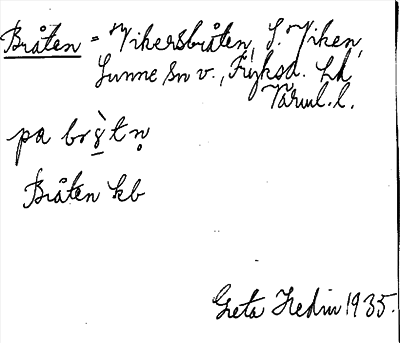 Bråten = Vikersbråten, S. Viken,
Sunne sn v., Fryksd. hd
Värml. l.
pa brꞩ̀tn̥
Bråten kb
Greta Hedin 1935.